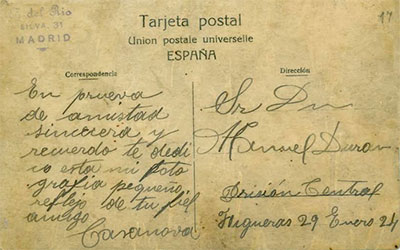 del Rio
SILVA, 31
MADRID
17
Tarjeta postal
Union postale universelle
ESPAÑA
Correspondencia
En prueva
de amistad
sincera y
recuerdo te dedi
co esta mi foto
grafia pequeño
reflejo de tu fiel
amigo
Casanova
Dirección
Sr Dn
Manuel Duran
Prisión Central
Figueras 29 Enero 24